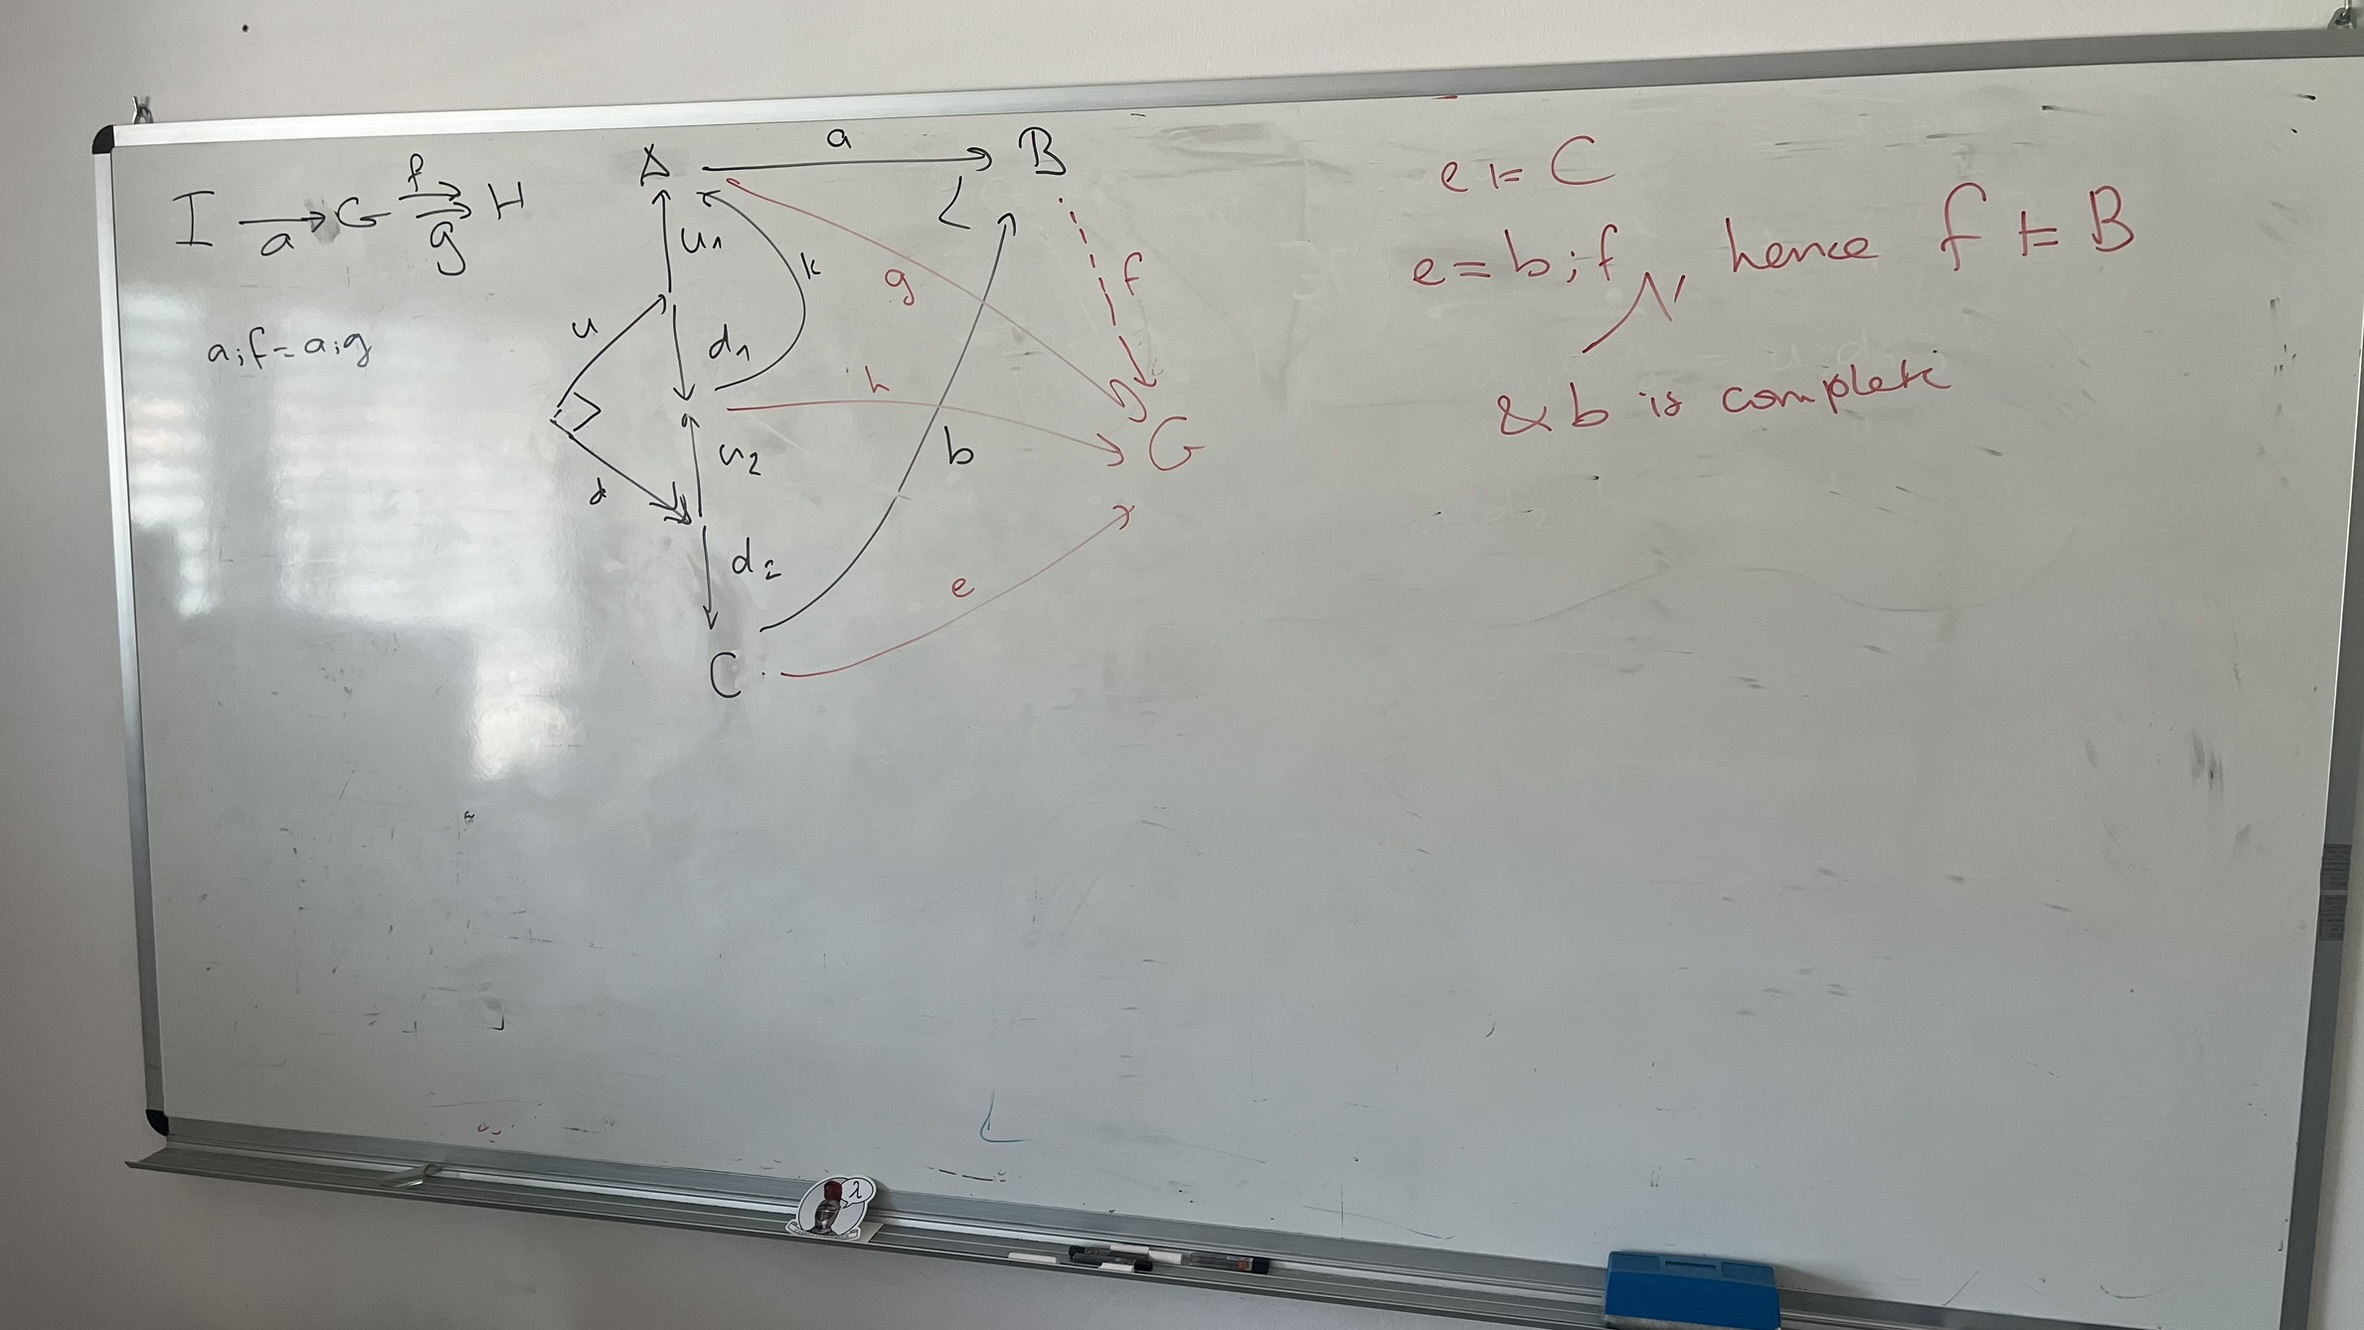 I →a G f⇉g H
a;f = a;g
A a B
u₁
k
g
f
u
d₁
h
G
u₂
b
d
d₂
e
C
e ⊨ C
e = b;f, hence f ⊨ B
& b is complete
λ